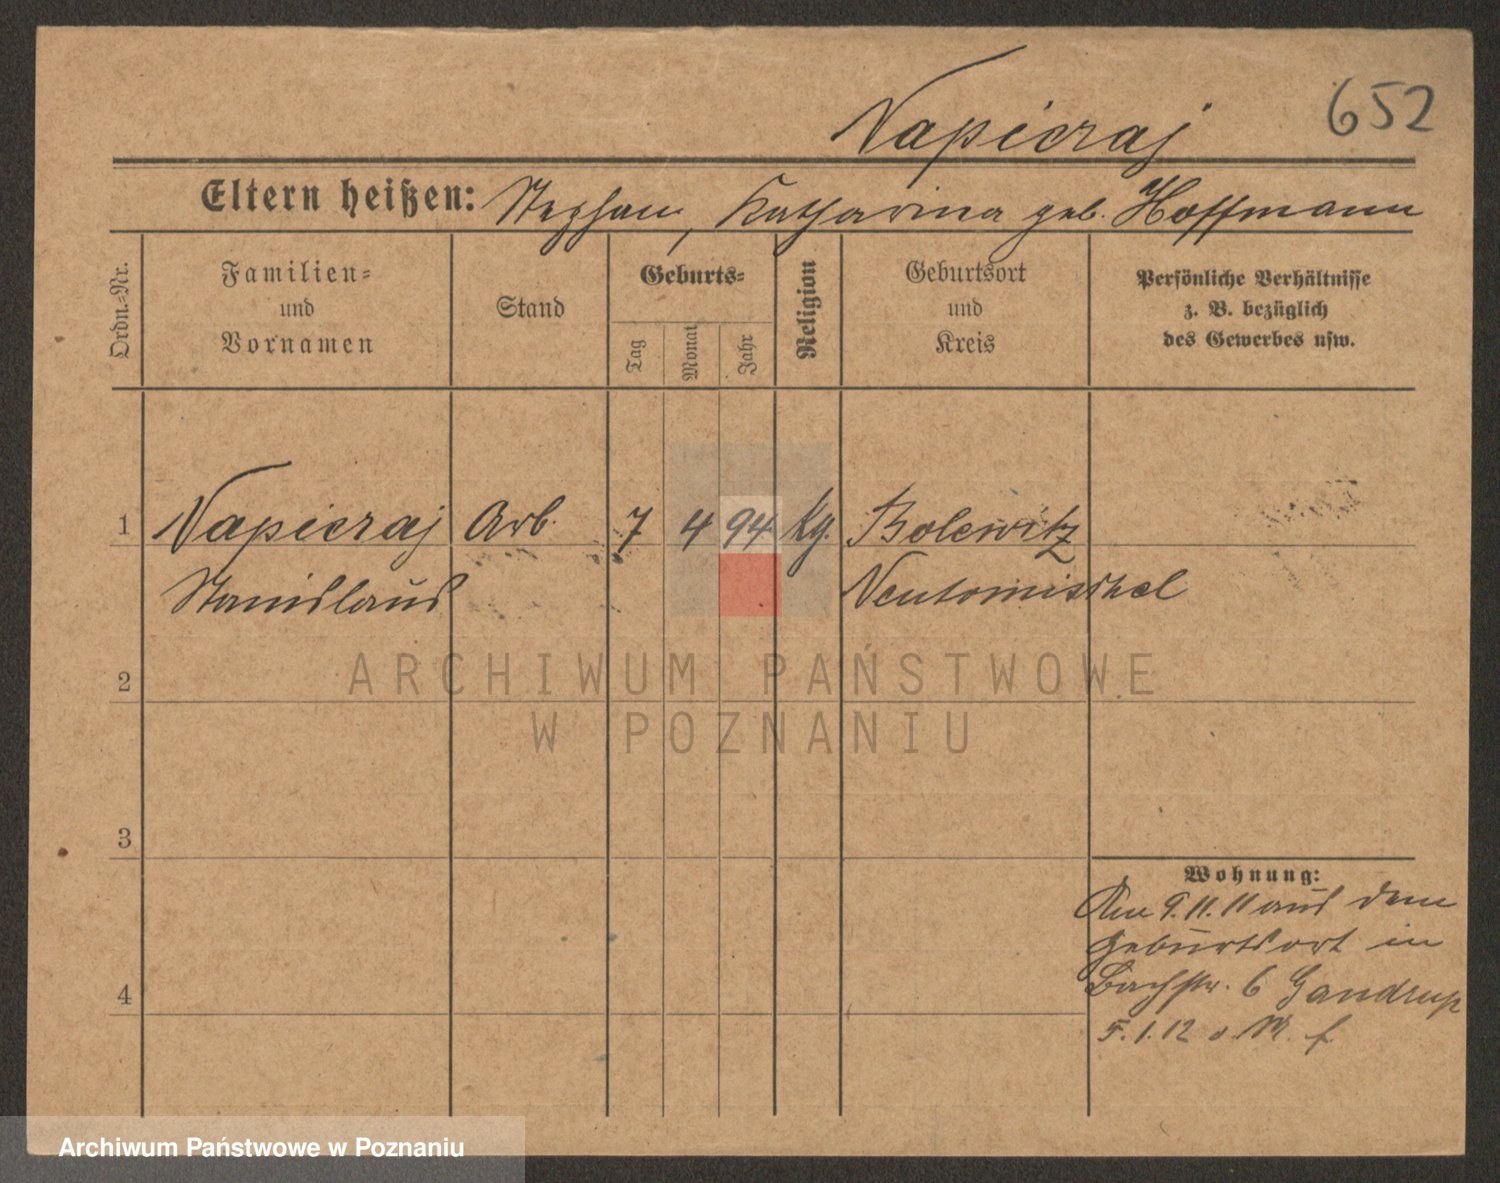 652
Napieraj
Eltern heißen: Stephan, Katharina geb. Hoffmann
Ordn.-Nr.
Familien-
und
Vornamen
Stand
Geburts-
Tag
Monat
Jahr
Religion
Geburtsort
und
Kreis
Persönliche Verhältnisse
z. B. bezüglich
des Gewerbes usw.
1 Napieraj Arb. 7 4 94 Kg. Bolewitz
Stanislaus Neutomischel
2
3
4
Wohnung:
Am 9.11.11 aus dem
Geburtsort in
Bachstr. 6 Gandrup
5.1.12 o. M. f
ARCHIWUM PAŃSTWOWE
W POZNANIU
Archiwum Państwowe w Poznaniu